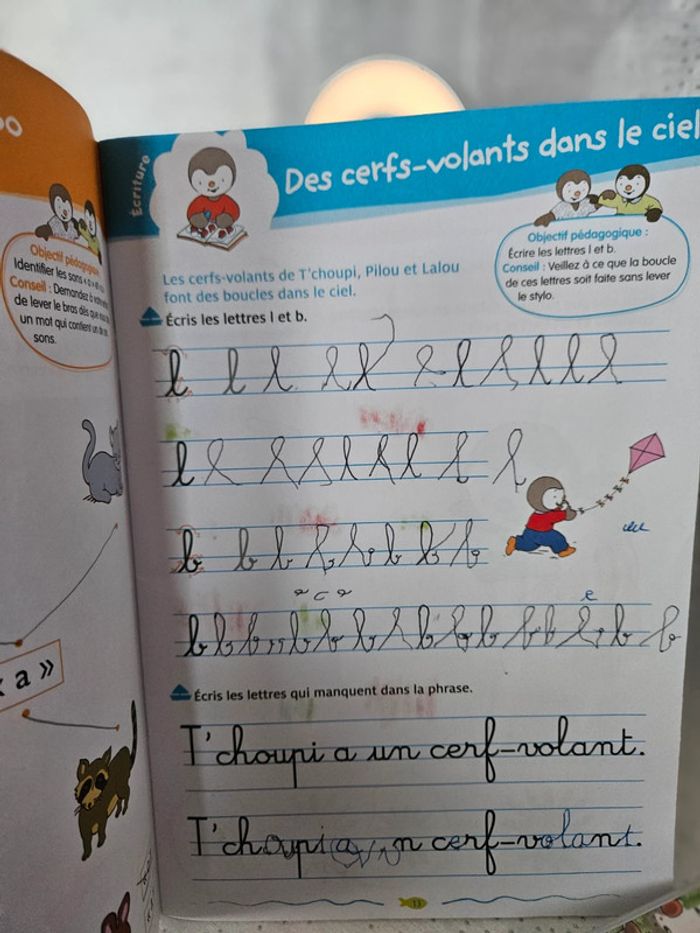 Écriture
Des cerfs-volants dans le ciel
Objectif pédagogique :
Écrire les lettres l et b.
Conseil : Veillez à ce que la boucle
de ces lettres soit faite sans lever
le stylo.
Les cerfs-volants de T'choupi, Pilou et Lalou
font des boucles dans le ciel.
Écris les lettres l et b.
l l l l l l l l l l l
l l l l l l l l l
b b b b b b b b
b b b b b b b b b b b b b b b
Écris les lettres qui manquent dans la phrase.
T'choupi a un cerf-volant.
T'choupi a un cerf-volant.
13
Objectif pédagogique
Identifier les sons « a »
Conseil : Demandez à votre
de lever le bras dès que vous
un mot qui contient un de
sons.
a »